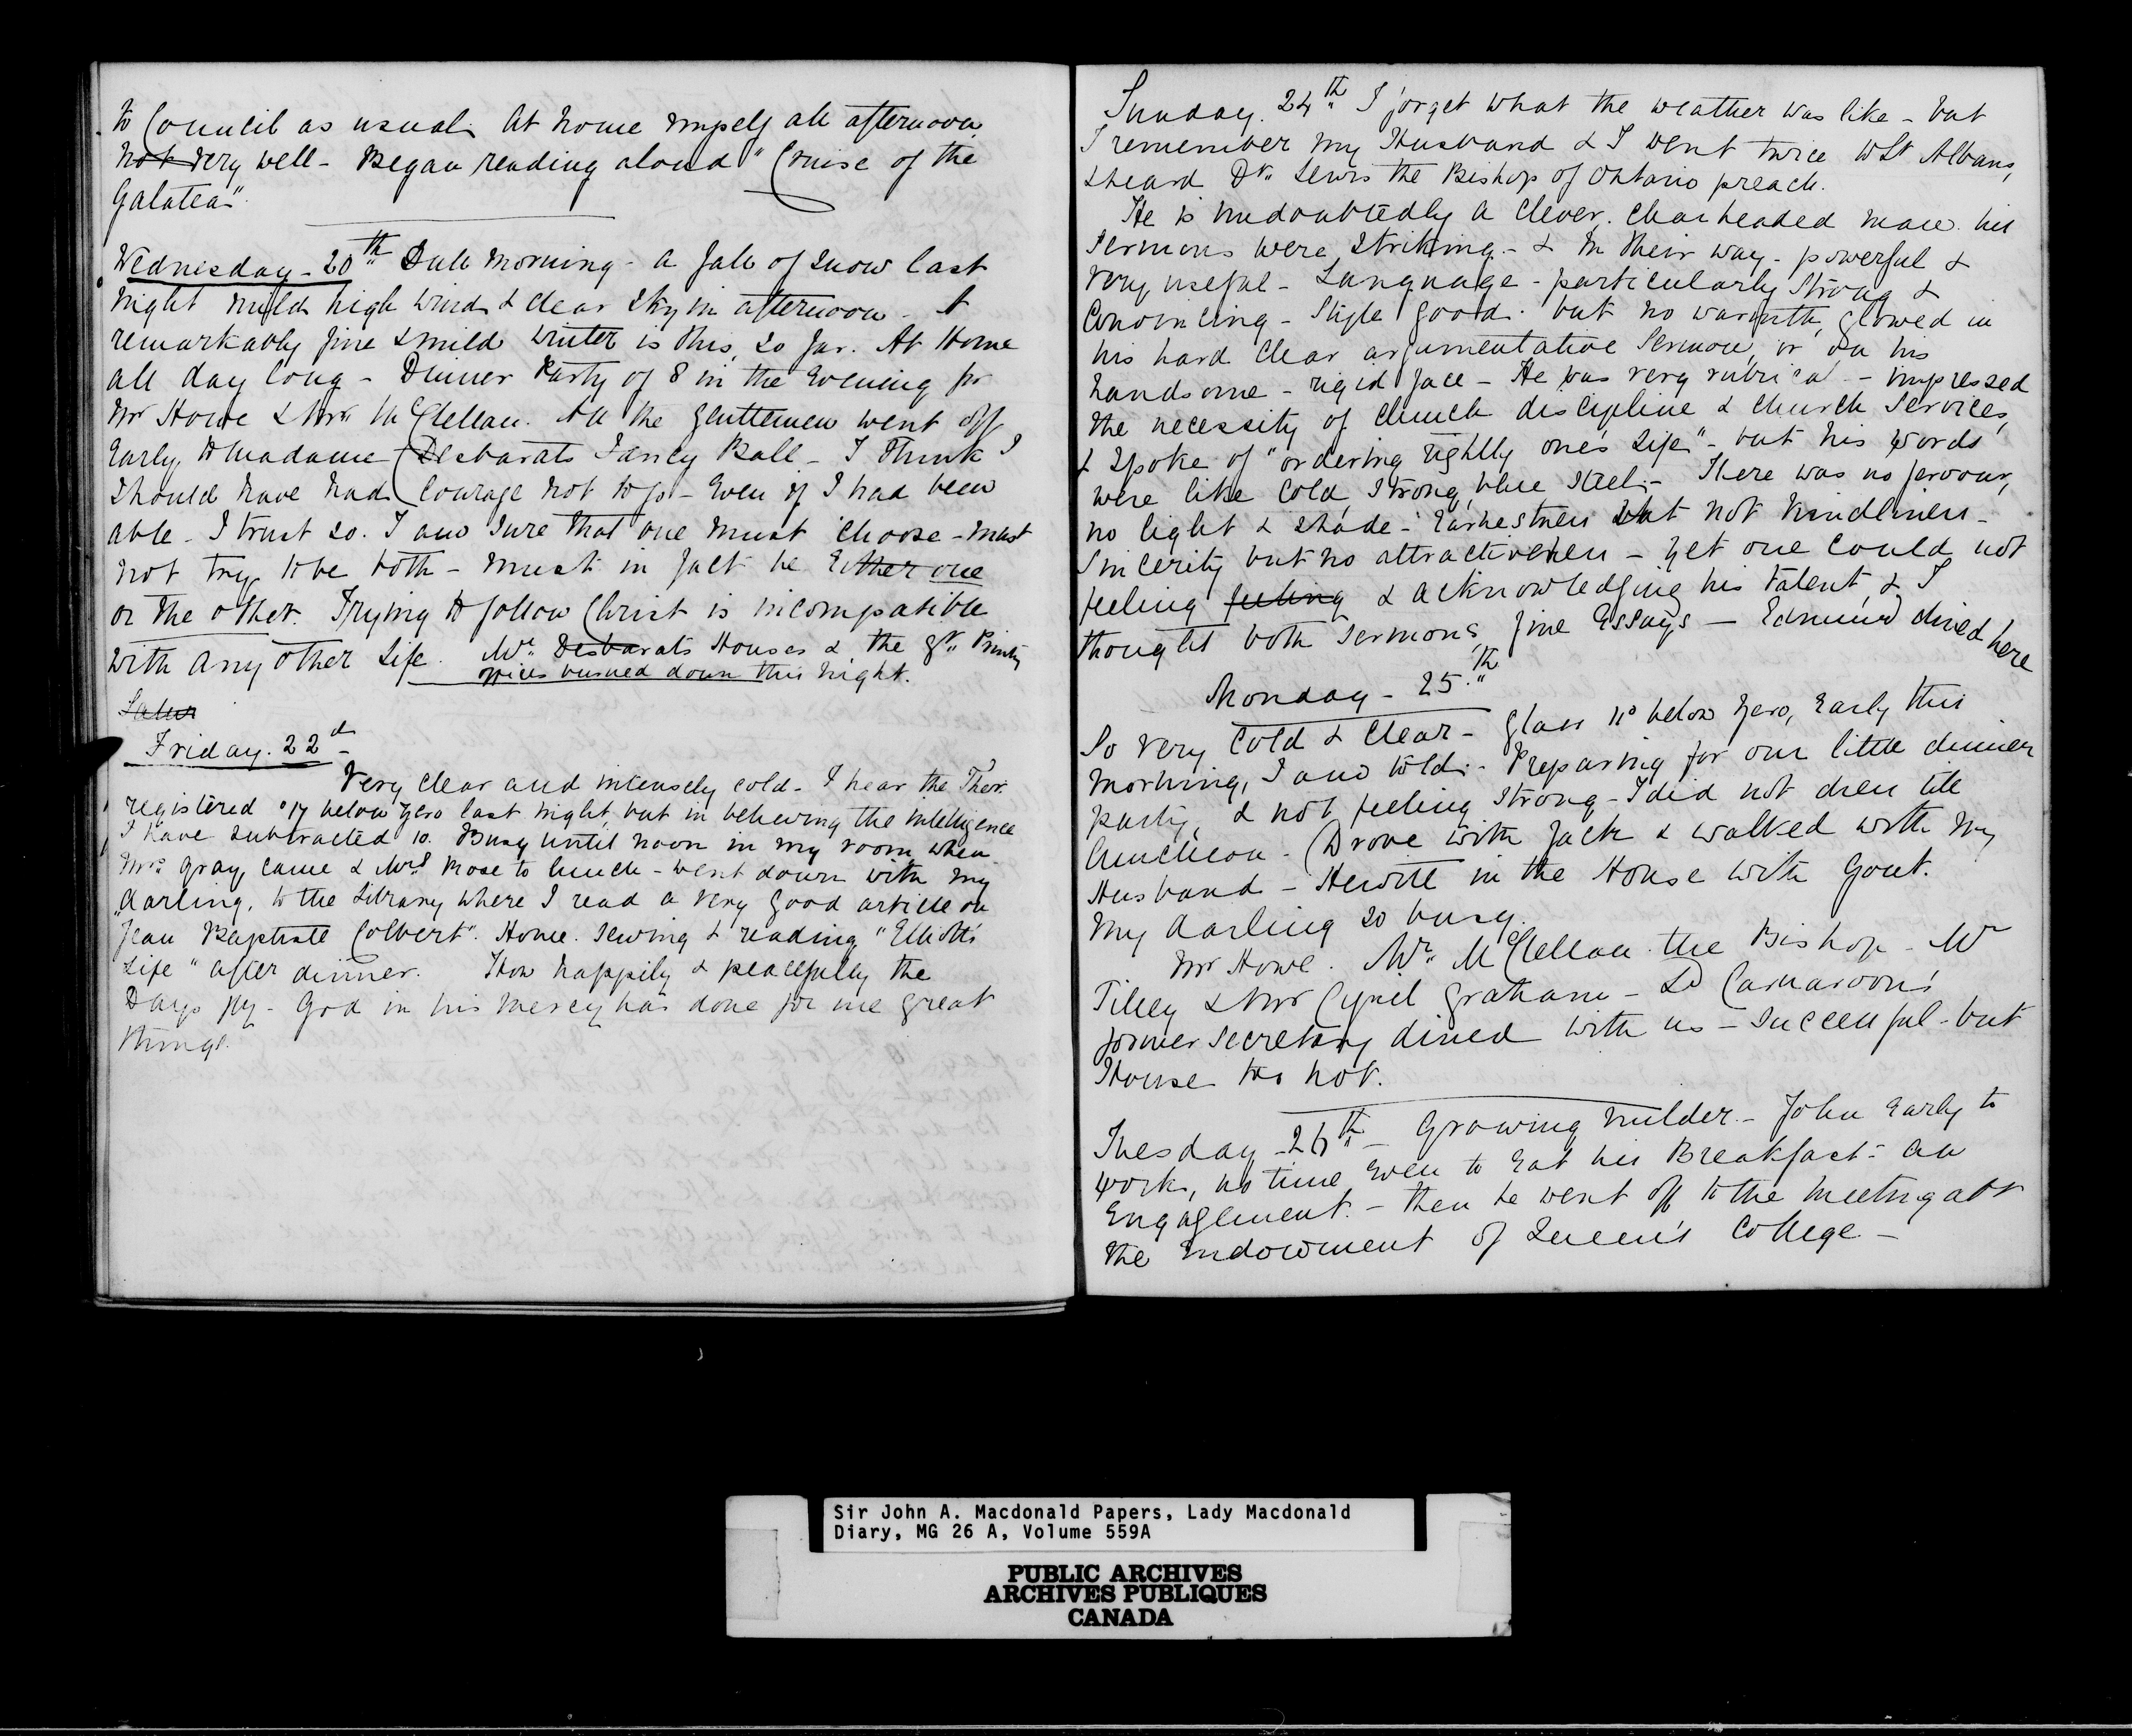 to Council as usual. At home myself all afternoon
not very well - Began reading aloud "Cruise of the
Galatea".
Wednesday - 20th Dull morning - a fall of snow last
night mild high wind & clear sky in afternoon - A
remarkably fine & mild winter is this, so far. At Home
all day long - Dinner Party of 8 in the Evening for
Mr Howe & Mr McClellan. All the gentlemen went off
Early, to Madame Desbarats Fancy Ball - I think I
should have had courage not to go - Even if I had been
able - I trust so. I am sure that one must choose - must
not try to be both - must in fact be Either one
or the other. Trying to follow Christ is incompatible
with any other Life. Mr Desbarats Houses & the Gt Printing
offices burned down this night.
Satur
Friday. 22d
Very clear and intensely cold - I hear the Ther.
registered °17 below zero last night, but in believing the intelligence
I have subtracted 10. Busy until noon in my room when
Mrs Gray came & Mrs Rose to lunch - went down with my
darling, to the Library where I read a very good article on
"Jean Baptiste Colbert". Home. Sewing & reading "Elliott's
Life" after dinner. How happily & peacefully the
Days fly - God in his mercy has done for me great
things.
Sunday. 24th I forget what the weather was like - but
I remember my Husband & I went twice to St Albans,
& heard Dr Lewis the Bishop of Ontario preach.
He is undoubtedly a clever, clear headed man. his
sermons were striking - & in their way - powerful &
very useful - Language - particularly strong &
convincing - Style good - but no warmth, glowed in
his hard clear argumentative Sermon, or on his
handsome - rigid face - He was very rubrical - impressed
the necessity of church discipline & church services,
& spoke of "ordering rightly one's Life" - but his words
were like cold, strong, blue steel - There was no fervour,
no light & shade - Earnestness but not kindliness -
Sincerity but no attractiveness - yet one could not
feeling feeling & acknowledging his talent, & I
thought both sermons, fine Essays - Edmund dined here
Monday - 25th
So very cold & clear - glass 11° below zero, Early this
morning, I am told - Preparing for our little dinner
party, & not feeling strong - I did not dress till
luncheon. Drove with Jack & walked with my
Husband - Hewitt in the House with Gout.
My darling so busy.
Mr Howe. Mr McClellan the Bishop - Mr
Tilley & Mr Cyril Graham - Ld Carnarvon's
former Secretary dined with us - Successful - but
House too hot.
Tuesday - 26th - Growing milder - John Early to
work, no time Even to Eat his Breakfast - an
Engagement. - then he went off to the meeting abt
the Endowment of Queen's College -
Sir John A. Macdonald Papers, Lady Macdonald
Diary, MG 26 A, Volume 559A
PUBLIC ARCHIVES
ARCHIVES PUBLIQUES
CANADA